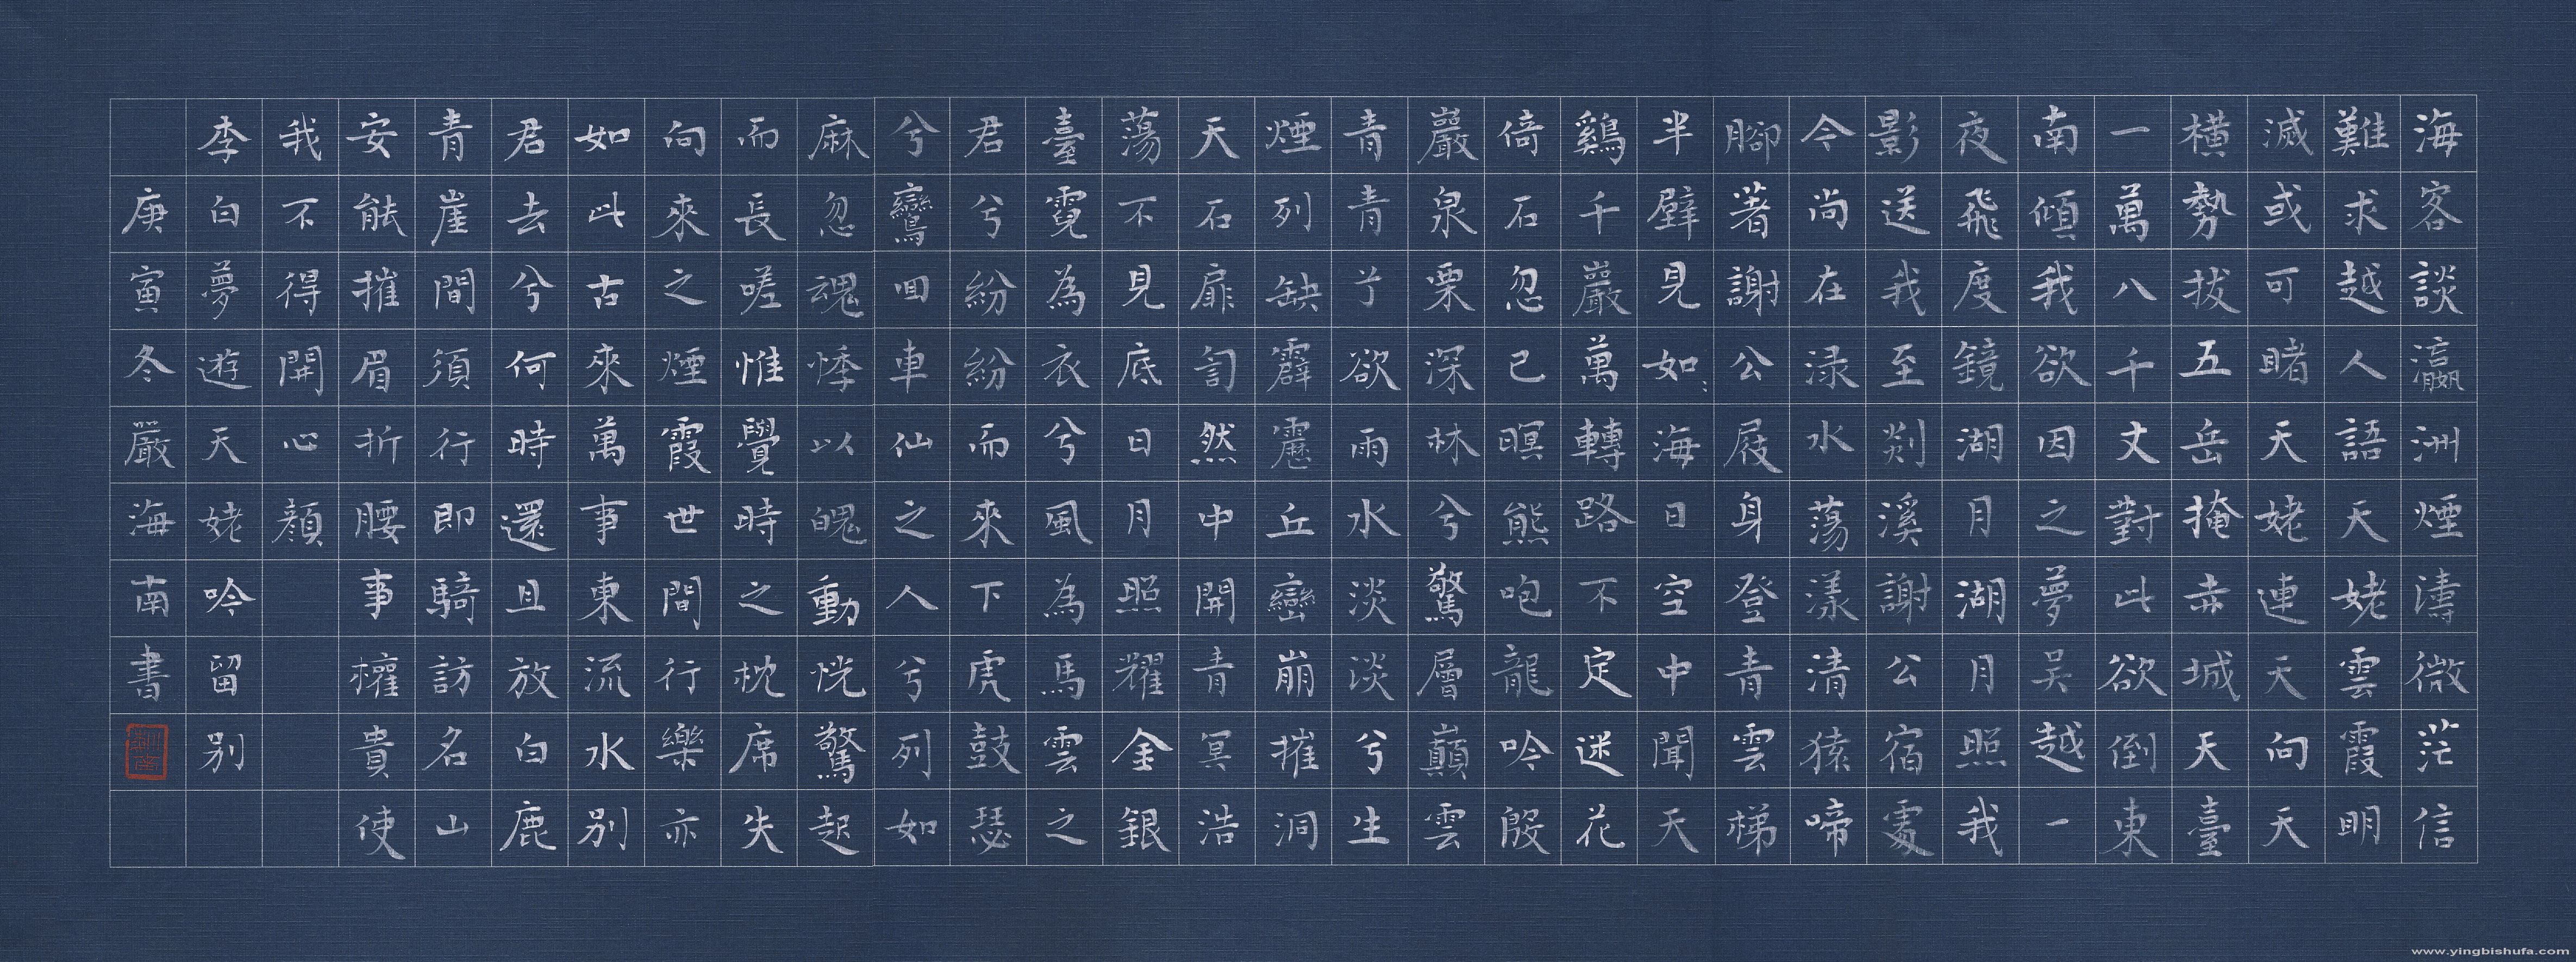 海客談瀛洲煙濤微茫信
難求越人語天姥雲霞明
滅或可睹天姥連天向天
橫勢拔五岳掩赤城天臺
一萬八千丈對此欲倒東
南傾我欲因之夢吳越一
夜飛度鏡湖月湖月照我
影送我至剡溪謝公宿處
今尚在渌水蕩漾清猿啼
腳著謝公屐身登青雲梯
半壁見如海日空中聞天
鷄千巖萬轉路不定迷花
倚石忽已暝熊咆龍吟殷
巖泉栗深林兮驚層巔雲
青青兮欲雨水淡淡兮生
煙列缺霹靂丘巒崩摧洞
天石扉訇然中開青冥浩
蕩不見底日月照耀金銀
臺霓為衣兮風為馬雲之
君兮紛紛而來下虎鼓瑟
兮鸞回車仙之人兮列如
麻忽魂悸以魄動恍驚起
而長嗟惟覺時之枕席失
向來之煙霞世間行樂亦
如此古來萬事東流水別
君去兮何時還且放白鹿
青崖間須行即騎訪名山
安能摧眉折腰事權貴使
我不得開心顏
李白夢遊天姥吟留別
庚寅冬嚴海南書
www.yingbishufa.com